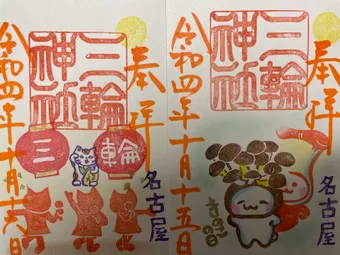 奉拝
三輪
神社
令和四年十月十五日
きのこの日
名古屋
奉拝
三輪
神社
三輪
令和四年十月十六日
名古屋